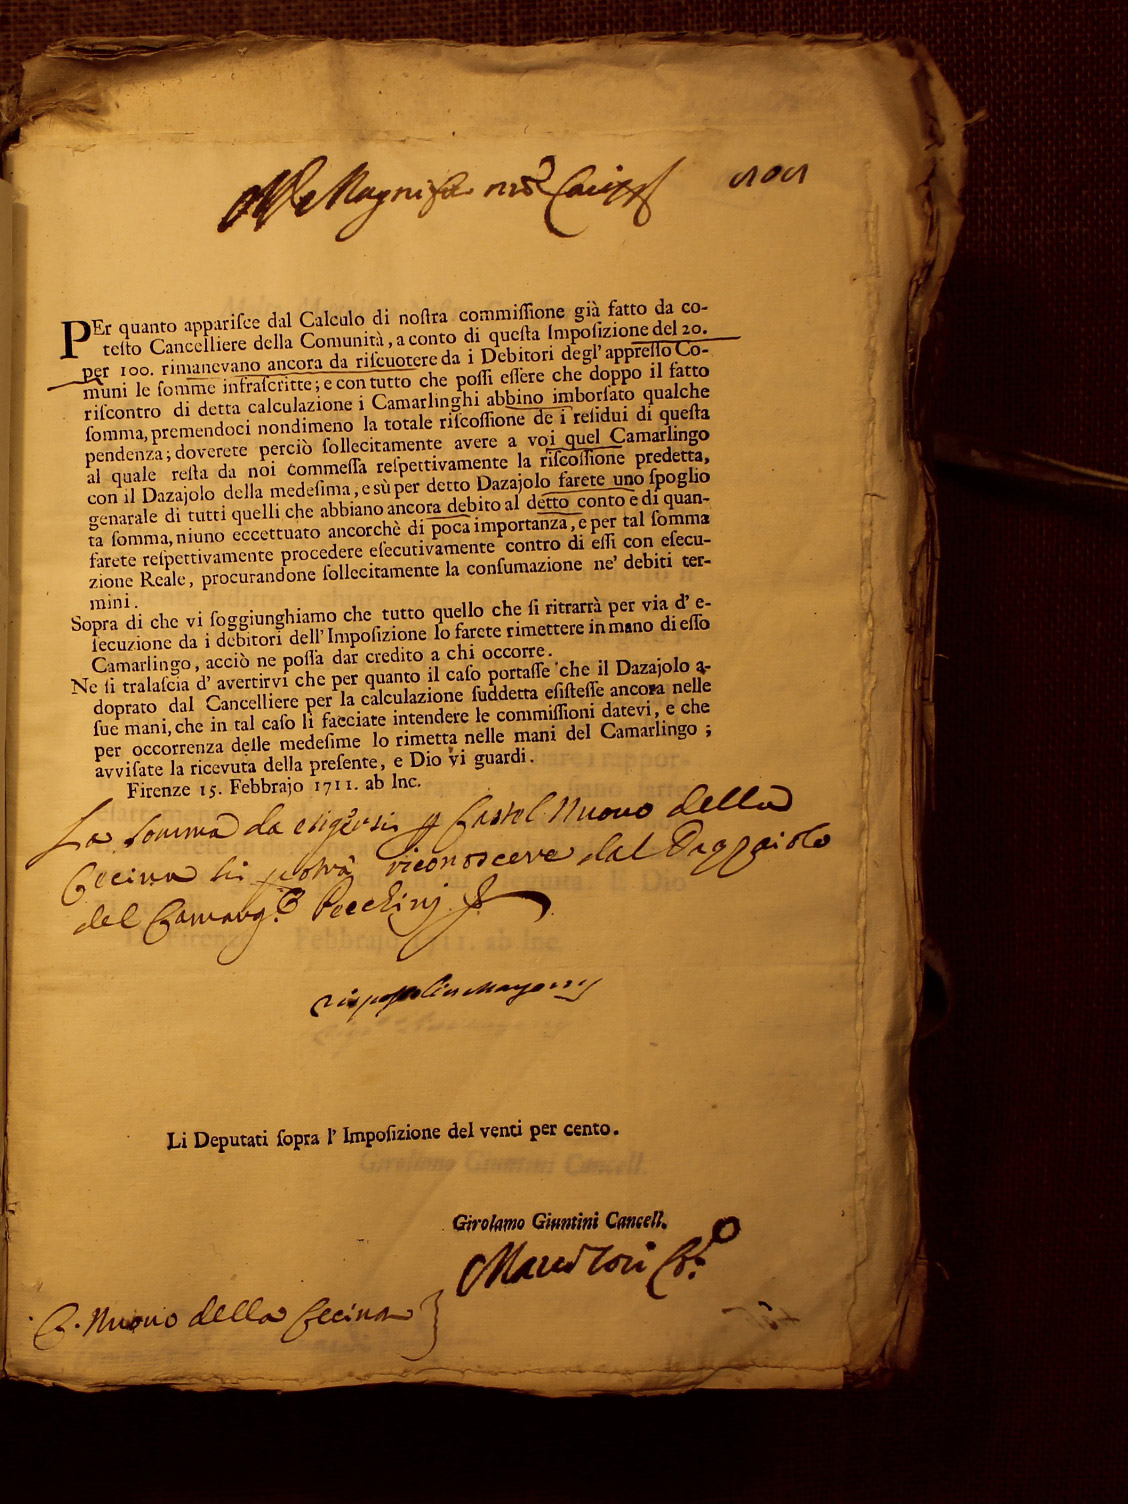 Molto Magnifico nr̃o Cariss.
505
PEr quanto apparisce dal Calculo di nostra commissione già fatto da co-
testo Cancelliere della Comunità, a conto di questa Imposizione del 20.
per 100. rimanevano ancora da riscuotere da i Debitori degl'appresso Co-
muni le somme infrascritte; e con tutto che possi essere che doppo il fatto
riscontro di detta calculazione i Camarlinghi abbino imborsato qualche
somma, premendoci nondimeno la totale riscossione de i residui di questa
pendenza; doverete perciò sollecitamente avere a voi quel Camarlingo
al quale resta da noi commessa respettivamente la riscossione predetta,
con il Dazajolo della medesima, e sù per detto Dazajolo farete uno spoglio
genarale di tutti quelli che abbiano ancora debito al detto conto e di quan-
ta somma, niuno eccettuato ancorchè di poca importanza, e per tal somma
farete respettivamente procedere esecutivamente contro di essi con esecu-
zione Reale, procurandone sollecitamente la consumazione ne' debiti ter-
mini.
Sopra di che vi soggiunghiamo che tutto quello che si ritrarrà per via d' e-
secuzione da i debitori dell'Imposizione lo farete rimettere in mano di esso
Camarlingo, acciò ne possa dar credito a chi occorre.
Ne si tralascia d' avertirvi che per quanto il caso portasse che il Dazajolo a-
doprato dal Cancelliere per la calculazione suddetta esistesse ancora nelle
sue mani, che in tal caso li facciate intendere le commissioni datevi, e che
per occorrenza delle medesime lo rimetta nelle mani del Camarlingo;
avvisate la ricevuta della presente, e Dio vi guardi.
Firenze 15. Febbrajo 1711. ab Inc.
La somma da esigersi p Castel Nuovo della
Cecina si potrà riconoscere dal Dazzaiolo
del Camarg.º Pecchinj
Li Deputati sopra l' Imposizione del venti per cento.
Girolamo Giuntini Cancell.
C. Nuovo della Cecina